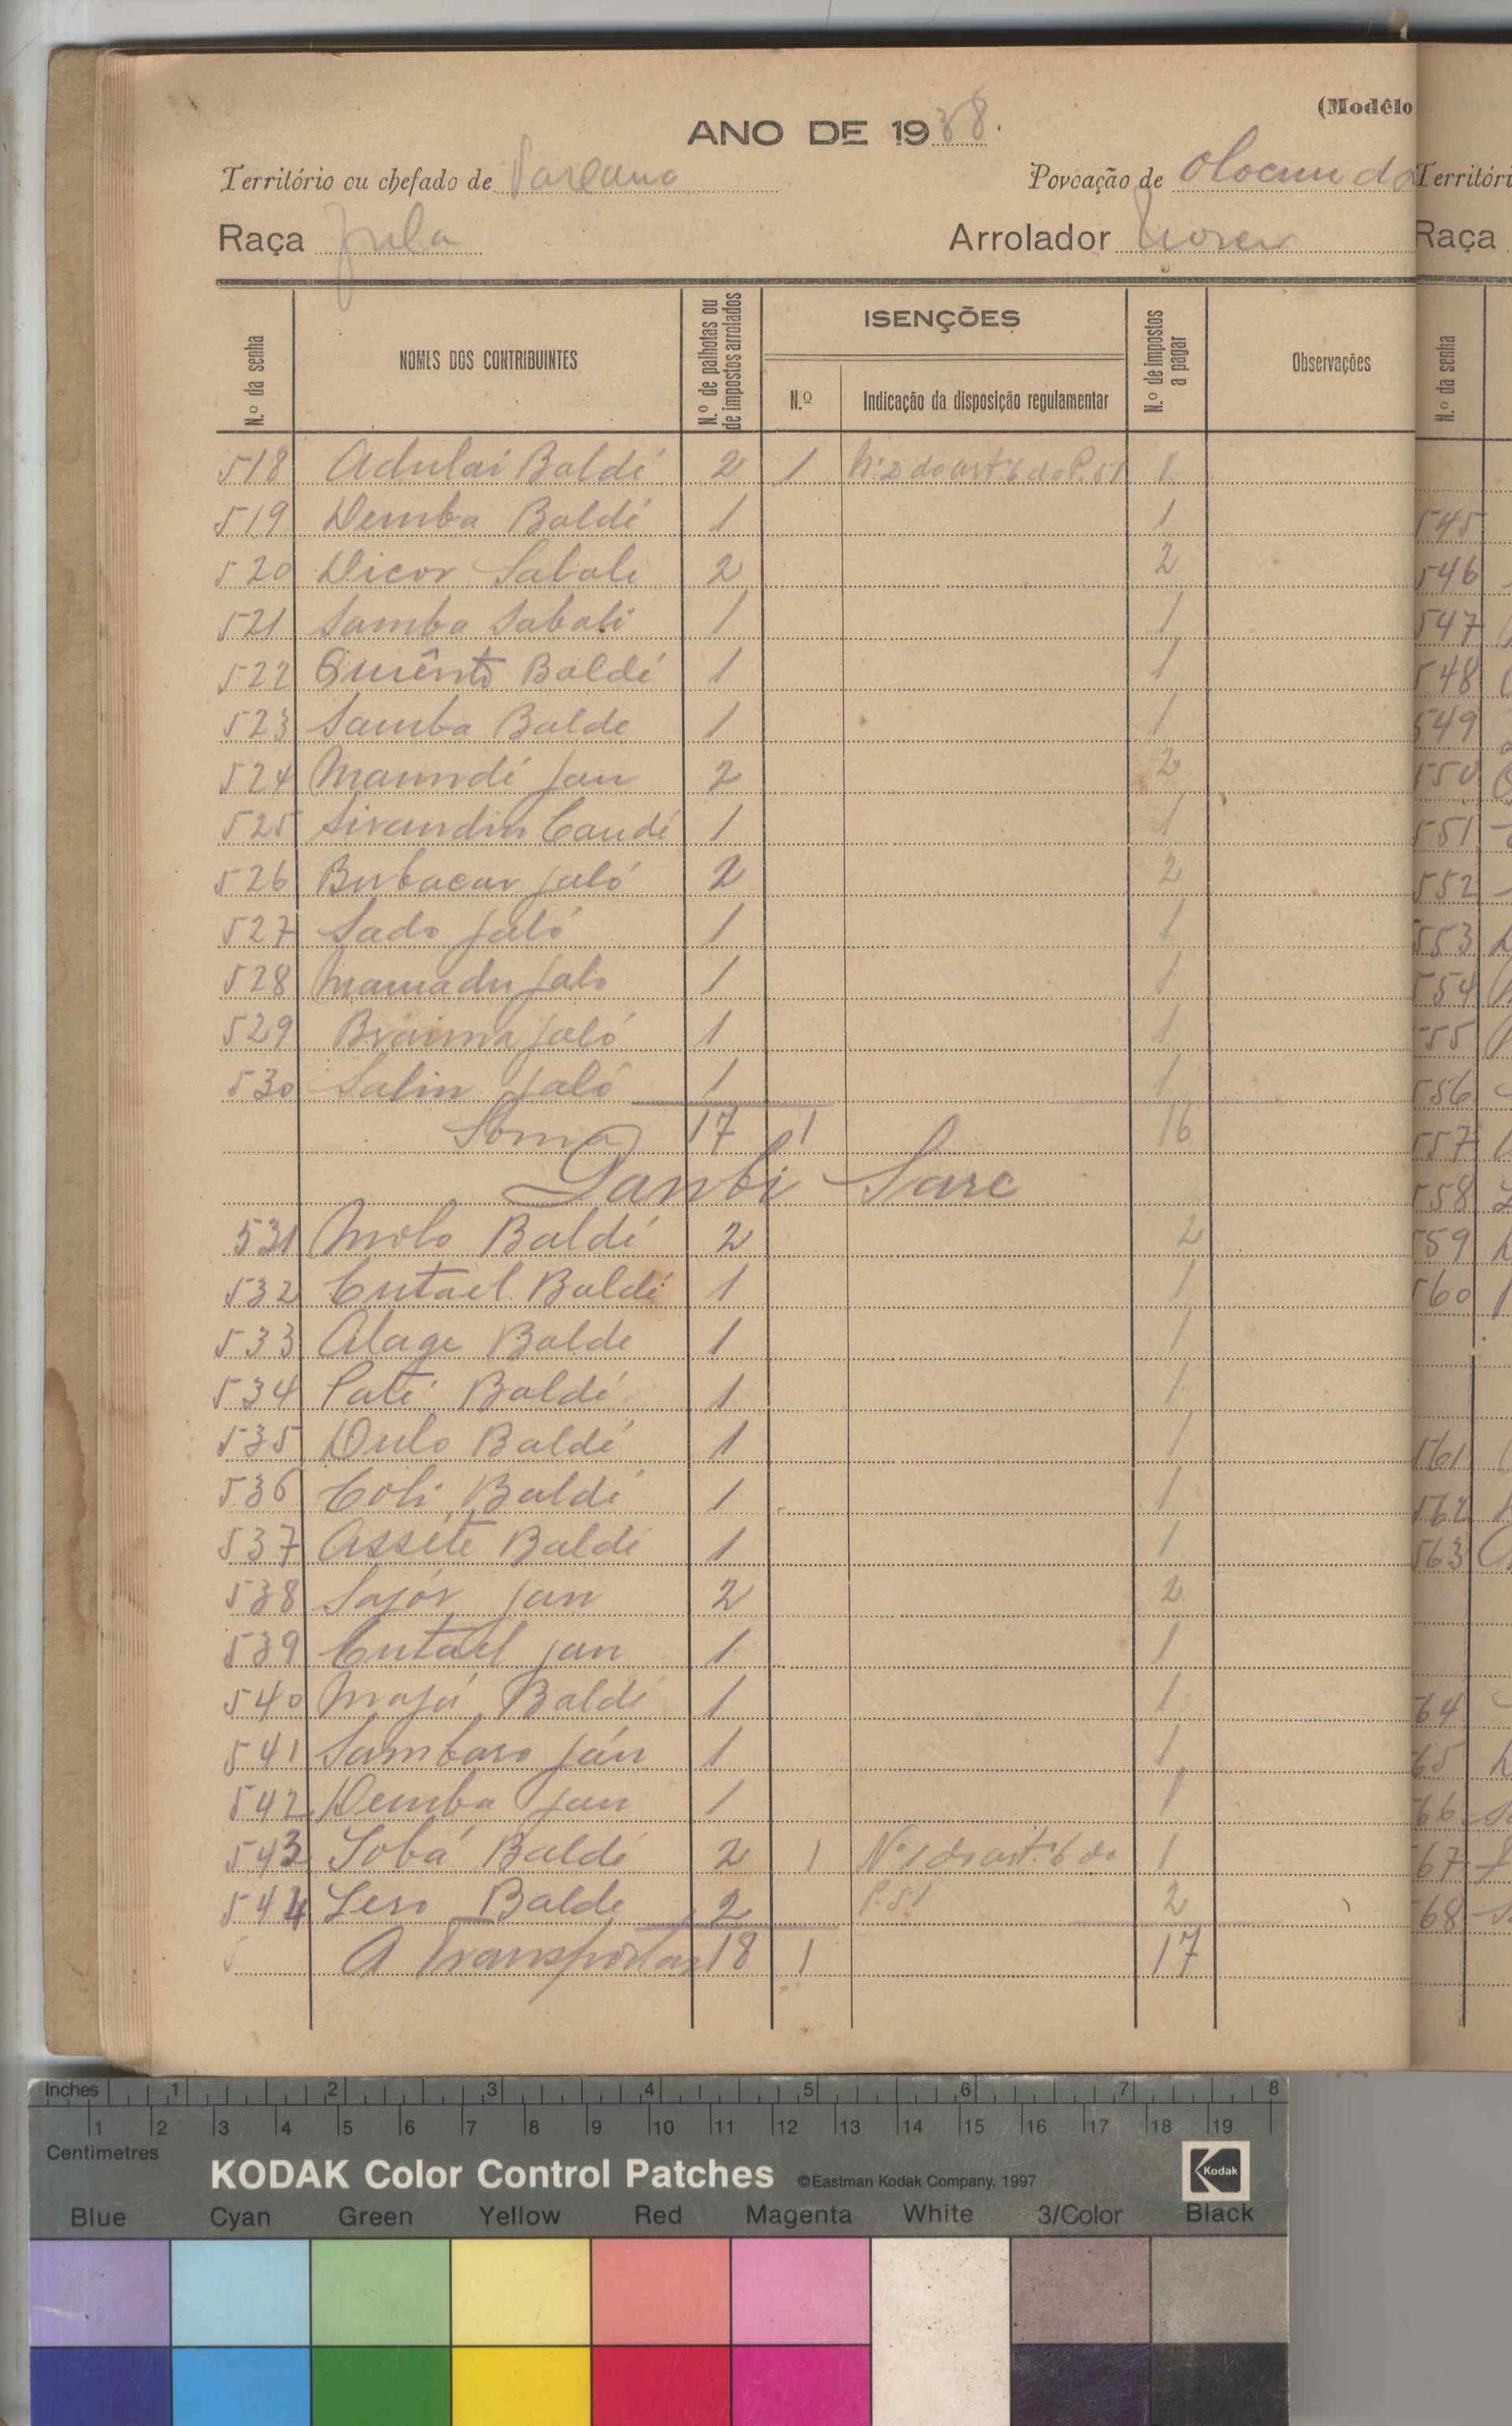 (Modêlo
ANO DE 1938.
Território ou chefado de
Povoação de
Raça Fula
Arrolador
N.º da senha
NOMES DOS CONTRIBUINTES
N.º de palhotas ou de impostos arrolados
ISENÇÕES
N.º
Indicação da disposição regulamentar
N.º de impostos a pagar
Observações
518 Adulai Baldé 2 1 N.º 2 do art.º 6 do P. 51 1
519 Demba Baldé 1 1
520 Dicor Sabali 2 2
521 Samba Sabali 1 1
522 Baldé 1 1
523 Samba Balde 1 1
524 Maundé Jau 2 2
525 Sirandin Candé 1 1
526 Bubacar Jaló 2 2
527 Sado Jaló 1 1
528 Mamadu Jalo 1 1
529 Braima Jaló 1 1
530 Salin Jaló 1 1
Soma 17 1 16
Sare
531 Molo Baldé 2 2
532 Cutael Baldé 1 1
533 Alage Balde 1 1
534 Paté Baldé 1 1
535 Dulo Baldé 1 1
536 Coli Baldé 1 1
537 Assete Baldé 1 1
538 Jau 2 2
539 Cutael Jau 1 1
540 Baldé 1 1
541 Sambaro Jáu 1 1
542 Demba Jau 1 1
543 Baldé 2 1 Nº 1 do art.º 6 do 1
544 Balde 2 P. 51 2
A Transportar 18 1 17
Territóri
Raça
N.º da senha
545
546
547
548
549
550
551
552
553
554
555
556
557
558
559
560
561
562
563
64
65
66
67
68
Inches 1 2 3 4 5 6 7 8
1 2 3 4 5 6 7 8 9 10 11 12 13 14 15 16 17 18 19
Centimetres
KODAK Color Control Patches ©Eastman Kodak Company, 1997 Kodak
Blue Cyan Green Yellow Red Magenta White 3/Color Black